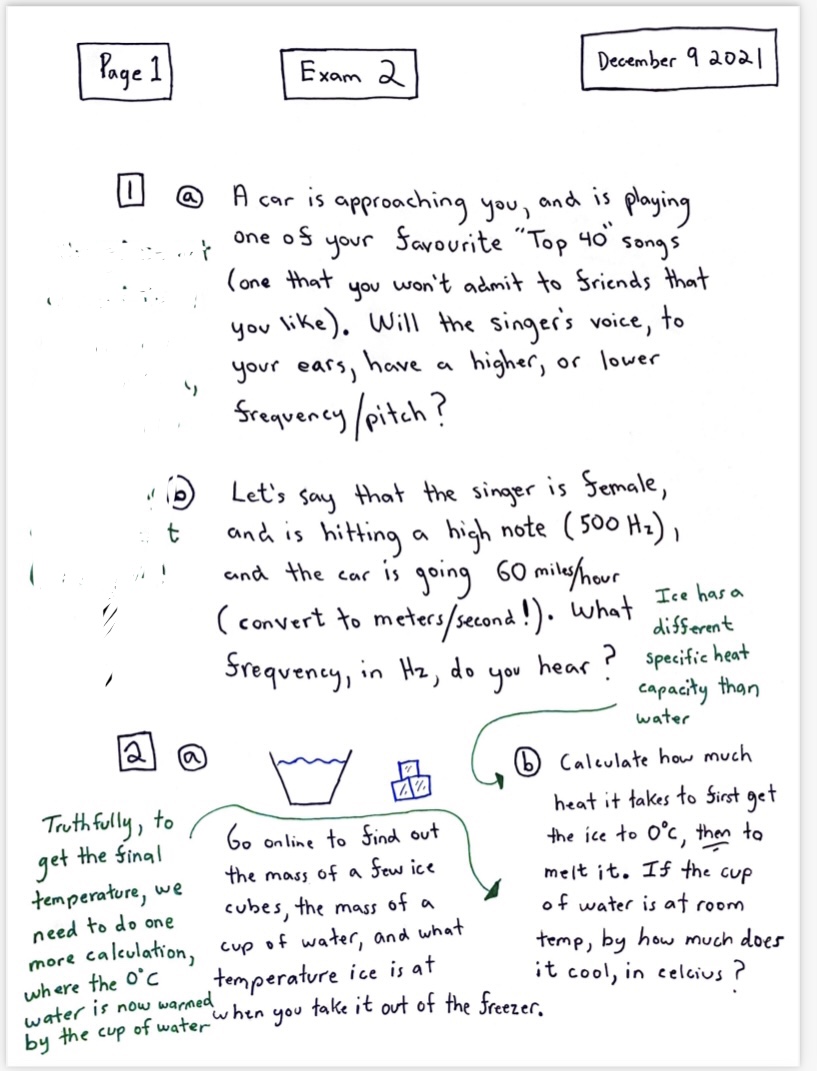 Page 1
Exam 2
December 9 2021
1 a A car is approaching you, and is playing
one of your favourite "Top 40" songs
(one that you won't admit to friends that
you like). Will the singer's voice, to
your ears, have a higher, or lower
frequency/pitch?
b Let's say that the singer is female,
and is hitting a high note (500 Hz),
and the car is going 60 miles/hour
(convert to meters/second!). What
frequency, in Hz, do you hear?
Ice has a
different
specific heat
capacity than
water
2 a
Go online to find out
the mass of a few ice
cubes, the mass of a
cup of water, and what
temperature ice is at
when you take it out of the freezer.
b Calculate how much
heat it takes to first get
the ice to 0°C, then to
melt it. If the cup
of water is at room
temp, by how much does
it cool, in celcius?
Truthfully, to
get the final
temperature, we
need to do one
more calculation,
where the 0°C
water is now warmed
by the cup of water